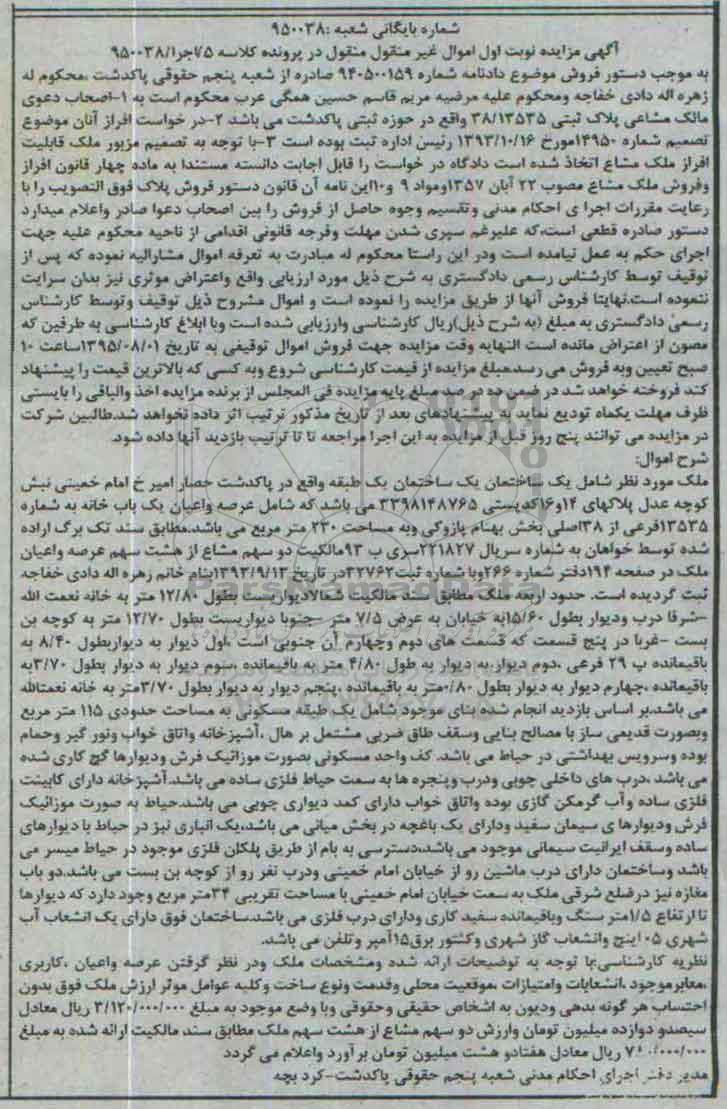 شماره بایگانی شعبه :۹۵۰۰۳۸
آگهی مزایده نوبت اول اموال غیر منقول منقول در پرونده کلاسه ۵/اجرا/۹۵۰۰۳۸
به موجب دستور فروش موضوع دادنامه شماره ۹۴۰۵۰۰۱۵۹ صادره از شعبه پنجم حقوقی پاکدشت ،محکوم له
زهره اله دادی خفاجه ومحکوم علیه مرضیه مریم قاسم حسین همگی عرب محکوم است به ۱-اصحاب دعوی
مالک مشاعی پلاک ثبتی ۳۸/۱۳۵۳۵ واقع در حوزه ثبتی پاکدشت می باشد ۲-در خواست افراز آنان موضوع
تصمیم شماره ۱۴۹۵۰مورخ ۱۳۹۳/۱۰/۱۶ رئیس اداره ثبت بوده است ۳-با توجه به تصمیم مزبور ملک قابلیت
افراز ملک مشاع اتخاذ شده است دادگاه در خواست را قابل اجابت دانسته مستندا به ماده چهار قانون افراز
وفروش ملک مشاع مصوب ۲۲ آبان ۱۳۵۷ومواد ۹ و۱۰این نامه آن قانون دستور فروش پلاک فوق التصویب را با
رعایت مقررات اجرا ی احکام مدنی وتقسیم وجوه حاصل از فروش را بین اصحاب دعوا صادر واعلام میدارد
دستور صادره قطعی است،که علیرغم سپری شدن مهلت وفرجه قانونی اقدامی از ناحیه محکوم علیه جهت
اجرای حکم به عمل نیامده است ودر این راستا محکوم له مبادرت به تعرفه اموال مشارالیه نموده که پس از
توقیف توسط کارشناس رسمی دادگستری به شرح ذیل مورد ارزیابی واقع واعتراض موثری نیز بدان سرایت
ننموده است.نهایتا فروش آنها از طریق مزایده را نموده است و اموال مشروح ذیل توقیف وتوسط کارشناس
رسمی دادگستری به مبلغ (به شرح ذیل)ریال کارشناسی وارزیابی شده است وبا ابلاغ کارشناسی به طرفین که
مصون از اعتراض مانده است النهایه وقت مزایده جهت فروش اموال توقیفی به تاریخ ۱۳۹۵/۰۸/۰۱ساعت ۱۰
صبح تعیین وبه فروش می رسد.مبلغ مزایده از قیمت کارشناسی شروع وبه کسی که بالاترین قیمت را پیشنهاد
کند فروخته خواهد شد در ضمن ده در صد مبلغ پایه مزایده فی المجلس از برنده مزایده اخذ والباقی را بایستی
ظرف مهلت یکماه تودیع نماید به پیشنهادهای بعد از تاریخ مذکور ترتیب اثر داده نخواهد شد.طالبین شرکت
در مزایده می توانند پنج روز قبل از مزایده به این اجرا مراجعه تا تا ترتیب بازدید آنها داده شود.
شرح اموال:
ملک مورد نظر شامل یک ساختمان یک ساختمان یک طبقه واقع در پاکدشت حصار امیر خ امام خمینی نبش
کوچه عدل پلاکهای ۱۴و۱۶کدپستی ۳۳۹۸۱۴۸۷۶۵ می باشد که شامل عرصه واعیان یک باب خانه به شماره
۱۳۵۳۵فرعی از ۳۸اصلی بخش بهنام پازوکی وبه مساحت ۲۳۰ متر مربع می باشد.مطابق سند تک برگ اراده
شده توسط خواهان به شماره سریال ۲۲۱۸۲۷سری ب ۹۳مالکیت دو سهم مشاع از هشت سهم عرصه واعیان
ملک در صفحه ۱۹۴دفتر شماره ۲۶۶وبا شماره ثبت۳۲۷۶۲در تاریخ ۱۳۹۳/۹/۱۳بنام خانم زهره اله دادی خفاجه
ثبت گردیده است. حدود اربعه ملک مطابق سند مالکیت شمالادیواریست بطول ۱۲/۸۰ متر به خانه نعمت الله
-شرقا درب ودیوار بطول ۱۵/۶۰به خیابان به عرض ۷/۵ متر -جنوبا دیواریست بطول ۱۲/۷۰ متر به کوچه بن
بست -غربا در پنج قسمت که قسمت های دوم وچهارم آن جنوبی است ،اول دیوار به دیواربطول ۸/۴۰ به
باقیمانده پ ۲۹ فرعی ،دوم دیوار به دیوار به طول ۴/۸۰ متر به باقیمانده ،سوم دیوار به دیوار بطول ۳/۷۰به
باقیمانده ،چهارم دیوار به دیوار بطول ۰/۸۰متر به باقیمانده ،پنجم دیوار به دیوار بطول ۳/۷۰متر به خانه نعمتالله
می باشد.بر اساس بازدید انجام شده بنای موجود شامل یک طبقه مسکونی به مساحت حدودی ۱۱۵ متر مربع
وبصورت قدیمی ساز با مصالح بنایی وسقف طاق ضربی مشتمل بر هال ،آشپزخانه واتاق خواب ونور گیر وحمام
بوده وسرویس بهداشتی در حیاط می باشد. کف واحد مسکونی بصورت موزائیک فرش ودیوارها گچ کاری شده
می باشد ،درب های داخلی چوبی ودرب وپنجره ها به سمت حیاط فلزی ساده می باشد.آشپزخانه دارای کابینت
فلزی ساده وآب گرمکن گازی بوده واتاق خواب دارای کمد دیواری چوبی می باشد.حیاط به صورت موزائیک
فرش ودیوارها ی سیمان سفید ودارای یک باغچه در بخش میانی می باشد،یک انباری نیز در حیاط با دیوارهای
ساده وسقف ایرانیت سیمانی موجود می باشد،دسترسی به بام از طریق پلکان فلزی موجود در حیاط میسر می
باشد وساختمان دارای درب ماشین رو از خیابان امام خمینی ودرب نفر رو از کوچه بن بست می باشد.دو باب
مغازه نیز درضلع شرقی ملک به سمت خیابان امام خمینی با مساحت تقریبی ۳۴متر مربع وجود دارد که دیوارها
تا ارتفاع ۱/۵متر سنگ وباقیمانده سفید کاری ودارای درب فلزی می باشد.ساختمان فوق دارای یک انشعاب آب
شهری ۰۵ اینچ وانشعاب گاز شهری وکنتور برق۱۵آمپر وتلفن می باشد.
نظریه کارشناسی:با توجه به توضیحات ارائه شده ومشخصات ملک ودر نظر گرفتن عرصه واعیان ،کاربری
،معابرموجود ،انشعابات وامتیازات ،موقعیت محلی وقدمت ونوع ساخت وکلیه عوامل موثر ارزش ملک فوق بدون
احتساب هر گونه بدهی ودیون به اشخاص حقیقی وحقوقی وبا وضع موجود به مبلغ ۳/۱۲۰/۰۰۰/۰۰۰ ریال معادل
سیصدو دوازده میلیون تومان وارزش دو سهم مشاع از هشت سهم ملک مطابق سند مالکیت ارائه شده به مبلغ
ریال معادل هفتادو هشت میلیون تومان بر آورد واعلام می گردد
مدیر دفتر اجرای احکام مدنی شعبه پنجم حقوقی پاکدشت-کرد بچه